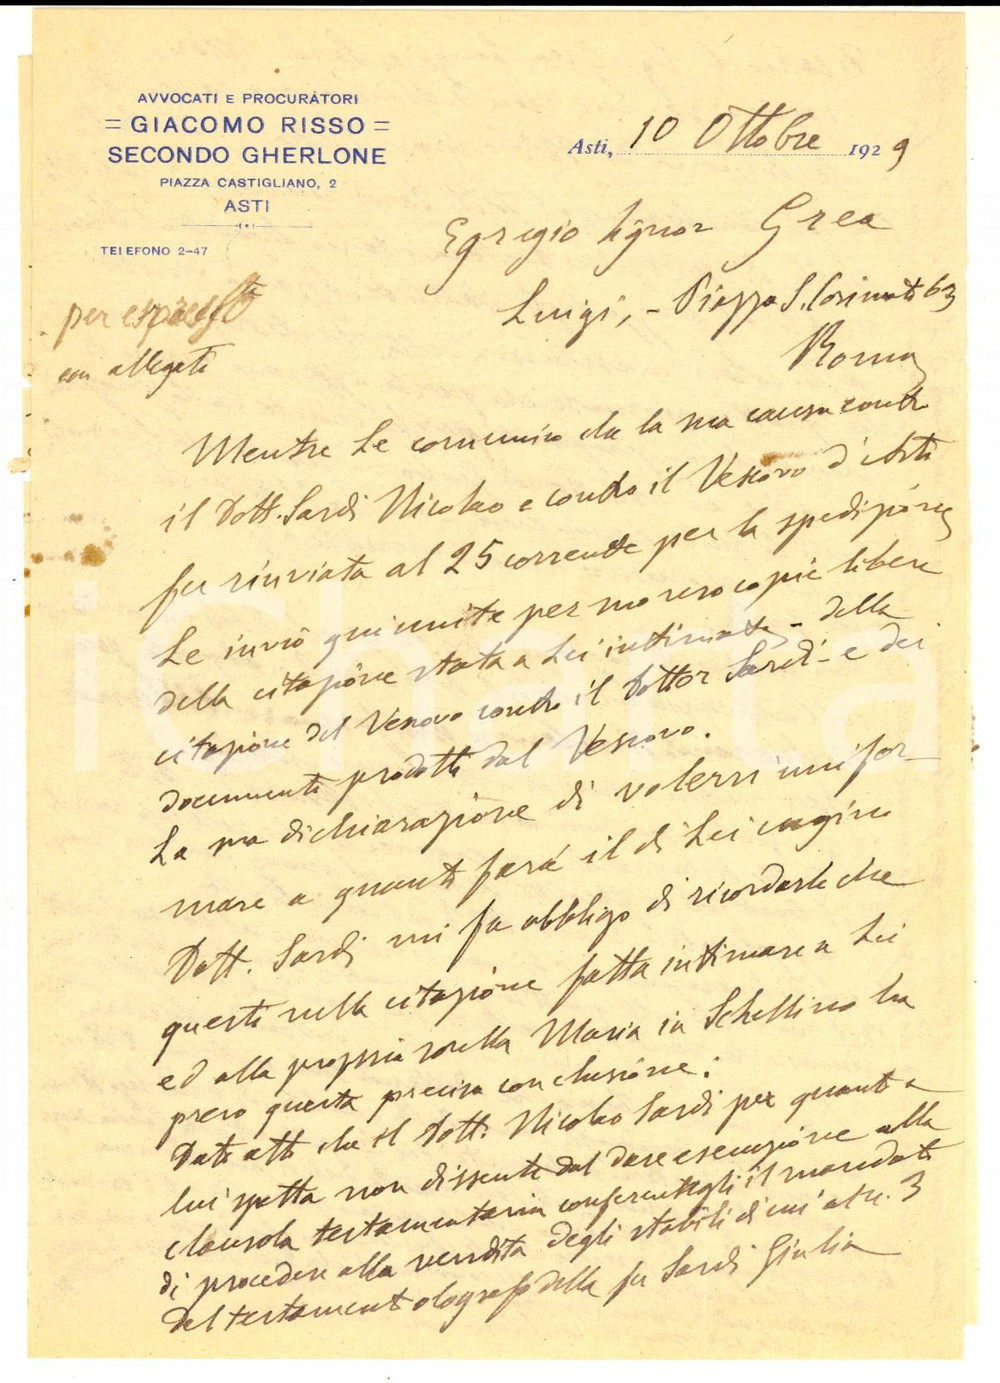 AVVOCATI E PROCURATORI
= GIACOMO RISSO =
SECONDO GHERLONE
PIAZZA CASTIGLIANO, 2
ASTI
TELEFONO 2-47
Asti, 10 Ottobre 1929
Egregio Signor Grea
Luigi, - Piazza S. Cosimato 63
Roma
per espresso
con allegati
Mentre Le comunico che la sua causa contro
il Dott. Sardi Nicolao e contro il Vescovo d'Asti
fu rinviata al 25 corrente per la spedizione
Le invio qui unite per suo uso copie libere
della citazione stata a Lei intimata - della
citazione del Vescovo contro il Dottor Sardi - e dei
documenti prodotti dal Vescovo.
La sua dichiarazione di volersi unifor-
mare a quanto farà il di Lei cugino
Dott. Sardi mi fa obbligo di ricordarle che
questi nella citazione fatta intimare a Lei
ed alla propria sorella Maria in Schellino ha
preso questa precisa conclusione:
Dato atto che il Dott. Nicolao Sardi per quanto a
lui spetta non dissente dal dare esecuzione alla
clausola testamentaria conferentegli il mandato
di procedere alla vendita degli stabili di cui a
3
del testamento olografo della fu Sardi Giulia
iStorta